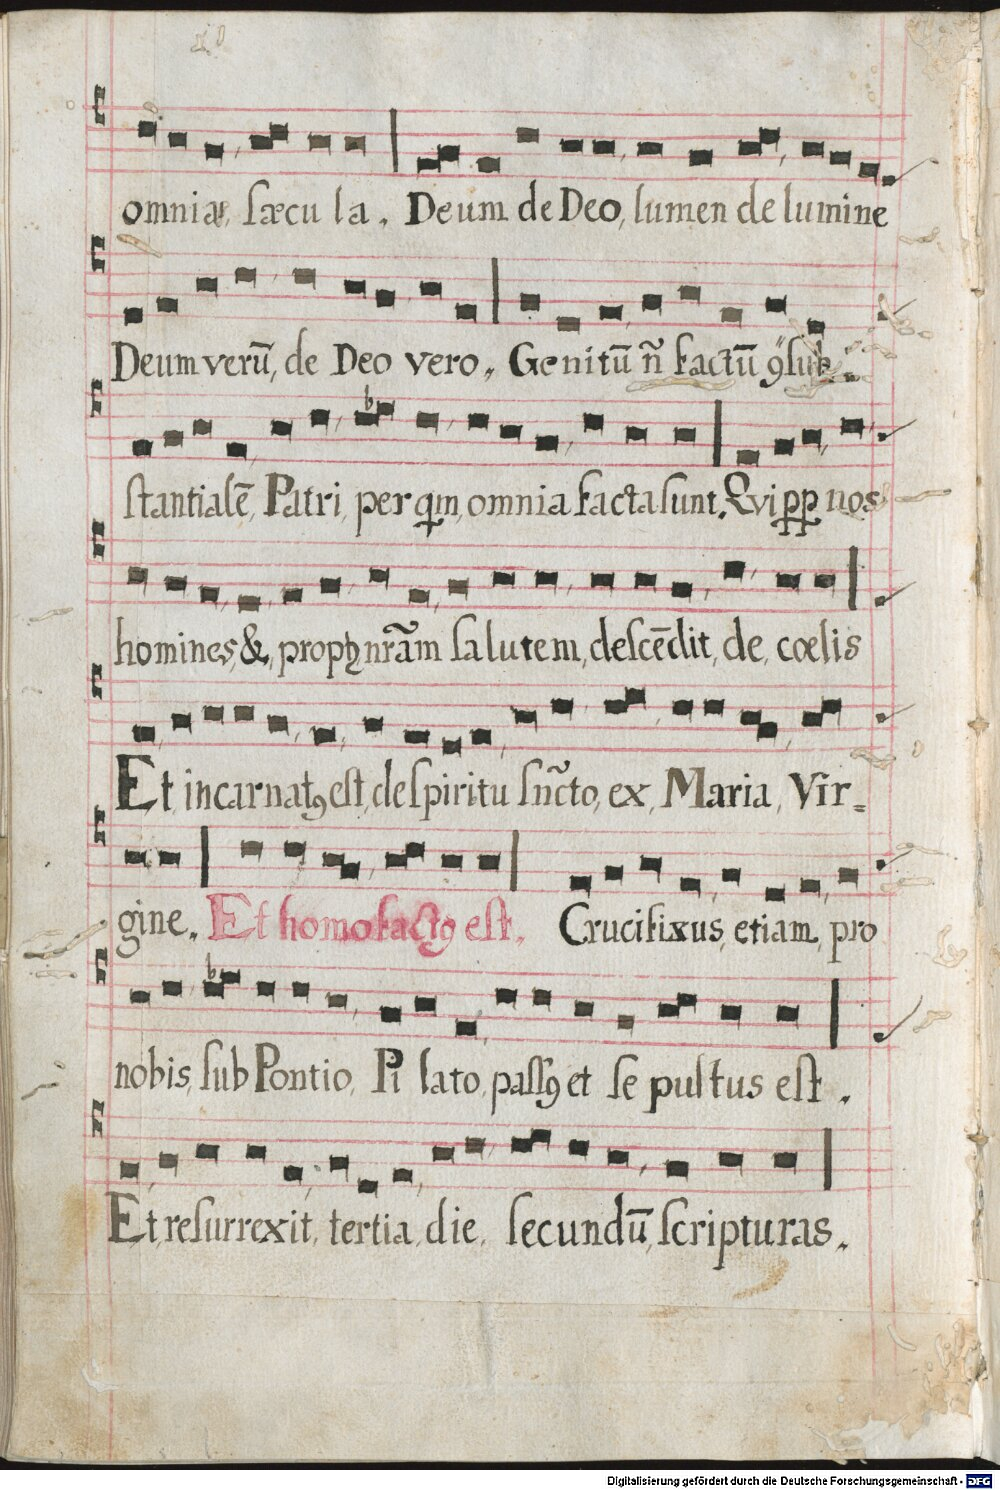 omnia, sæcu la. Deum de Deo, lumen de lumine
Deum verū, de Deo vero. Genitū n̄ factū ꝯsub-
stantialē, Patri, per qm, omnia facta sunt. Qui ꝓꝑ nos
homines, & propꝫ nr̃am salutem, descēdit, de, cœlis
Et incarnatꝯ est, de spiritu sñcto, ex, Maria, Vir=
gine. Et homo factꝯ est. Crucifixus, etiam, pro
nobis, sub Pontio, Pi lato, passꝯ et se pultus est.
Et, resurrexit, tertia, die, secundū, scripturas.
Digitalisierung gefördert durch die Deutsche Forschungsgemeinschaft - DFG